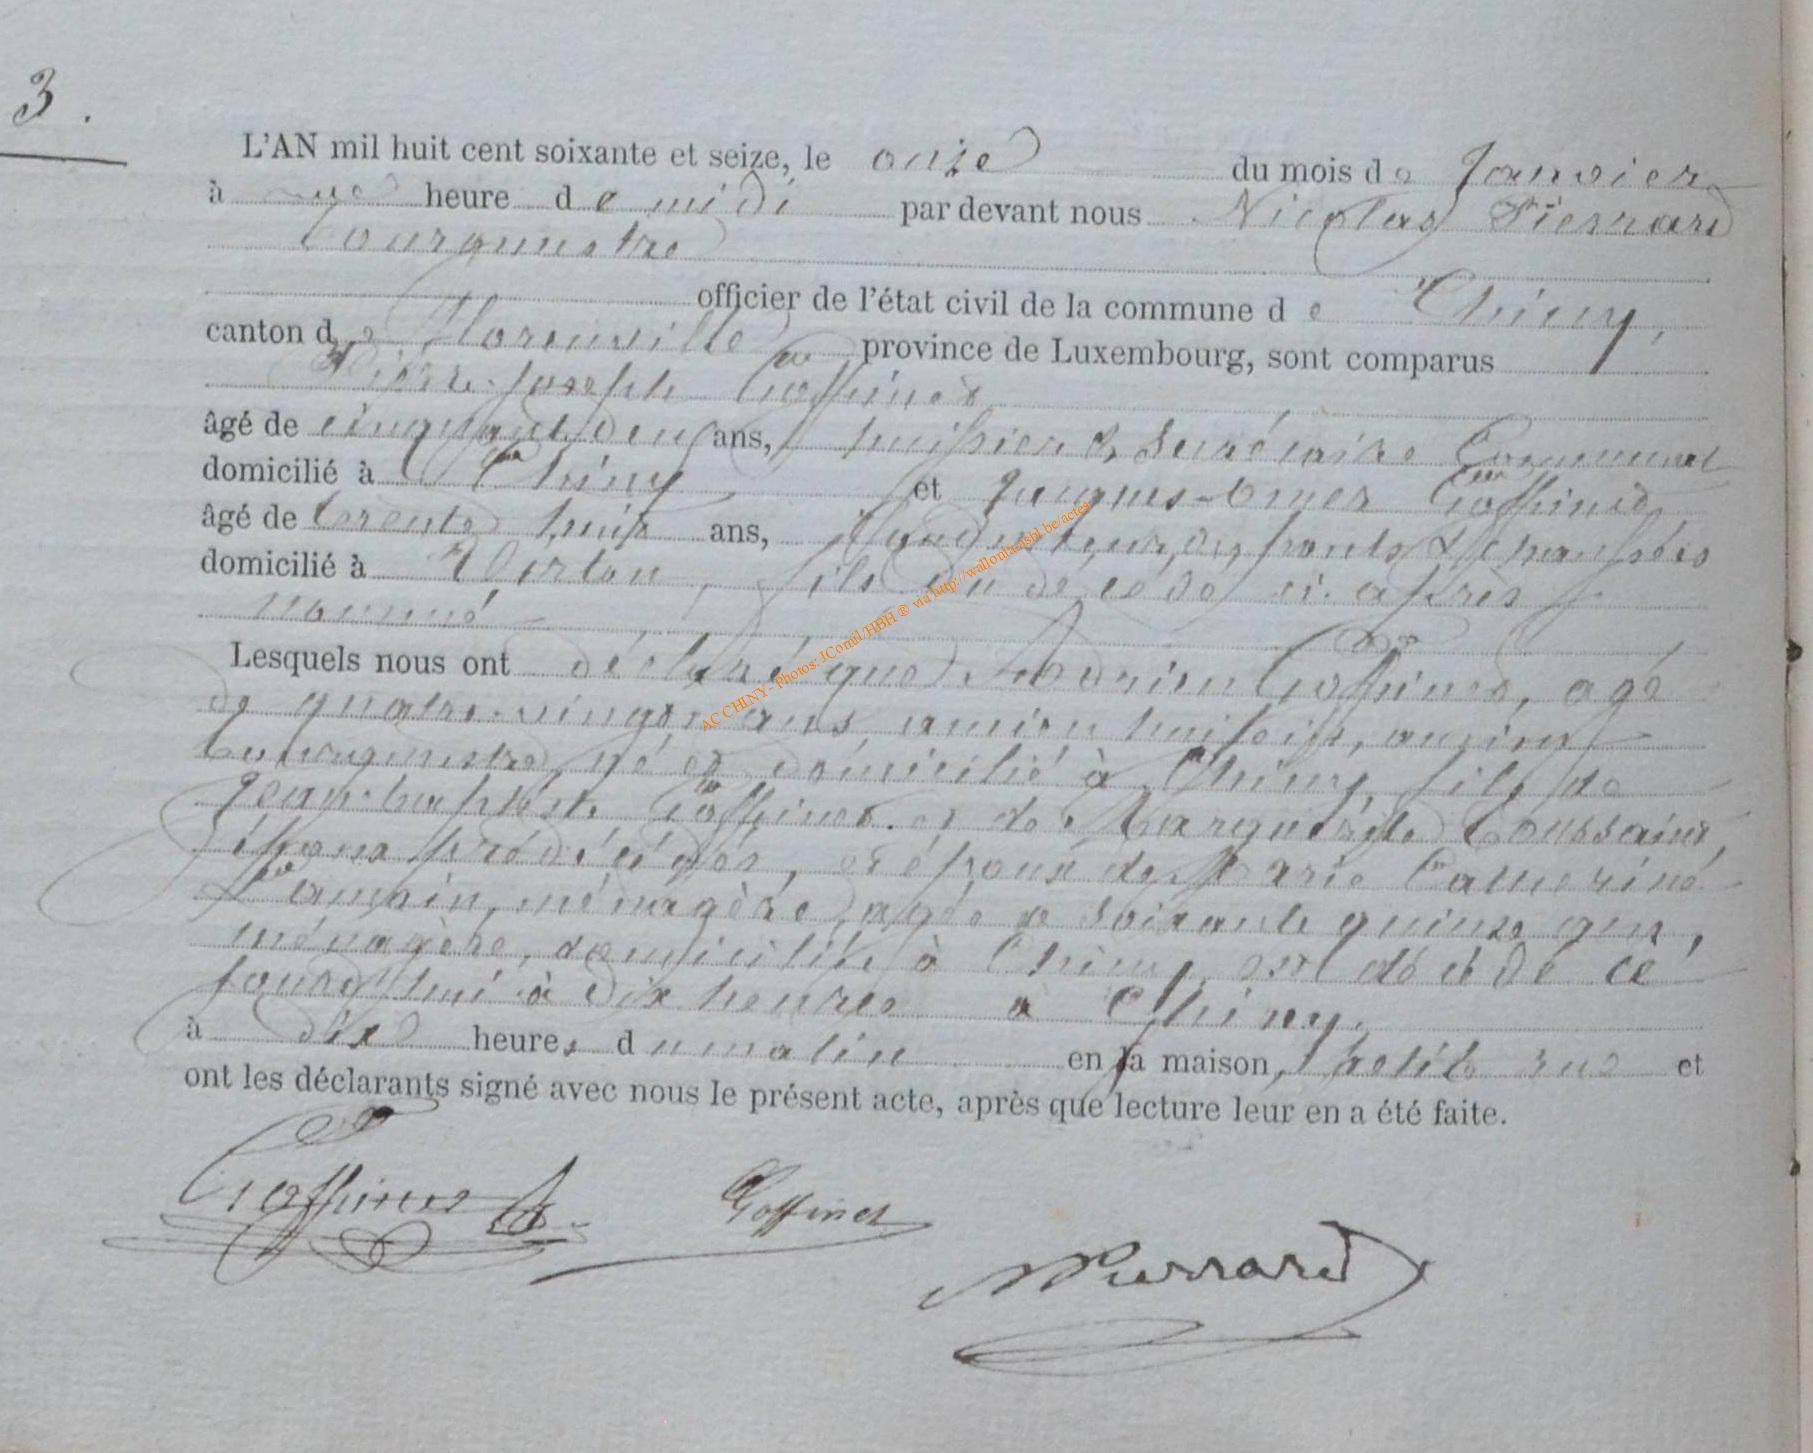 3.
L'AN mil huit cent soixante et seize, le onze du mois de Janvier
à une heure de midi par devant nous Nicolas Pierrard
bourgmestre
officier de l'état civil de la commune de Chiny,
canton de Florenville province de Luxembourg, sont comparus
Pierre-Joseph Goffinet
âgé de cinquante deux ans, huissier & Secrétaire Communal
domicilié à Chiny et Jacques-Omer Goffinet
âgé de trente huit ans, Conducteur des ponts & chaussées
domicilié à Virton, fils du décédé ci-après
nommé
Lesquels nous ont déclaré que Adrien Goffinet, agé
de quatre-vingt ans, ancien huissier, ancien
bourgmestre, né et domicilié à Chiny, fils de
Jean-baptiste Goffinet et de Marguerite Toussaint,
époux prédécédés, et époux de Marie Catherine
ménagère, agée de soixante quinze ans,
ménagère, domiciliée à Chiny, est décédé ce
jourd'hui à dix heures à Chiny.
à dix heures du matin en la maison, petite rue et
ont les déclarants signé avec nous le présent acte, après que lecture leur en a été faite.
Goffinet
Goffinet
NPierrard
AC CHINY - Photos: JComil/HBH ® via http://wallonia-asbl.be/actes